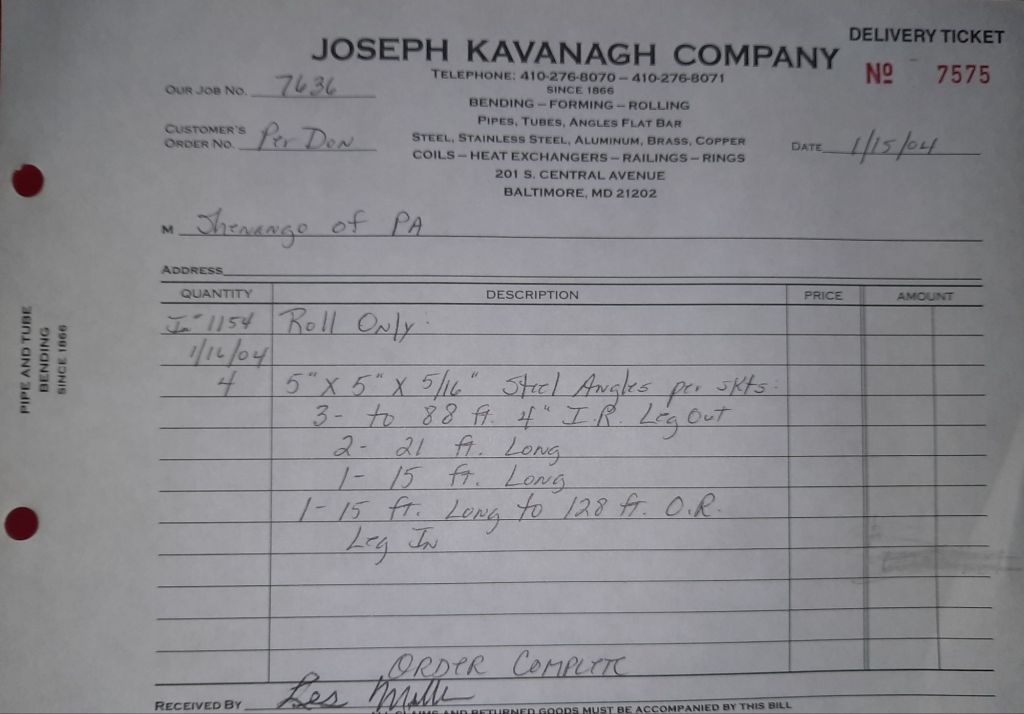 DELIVERY TICKET
JOSEPH KAVANAGH COMPANY
Nº 7575
TELEPHONE: 410-276-8070 – 410-276-8071
SINCE 1866
OUR JOB NO. 7636
BENDING – FORMING – ROLLING
PIPES, TUBES, ANGLES FLAT BAR
CUSTOMER'S
ORDER NO. Per Don
STEEL, STAINLESS STEEL, ALUMINUM, BRASS, COPPER
DATE 1/15/04
COILS – HEAT EXCHANGERS – RAILINGS – RINGS
201 S. CENTRAL AVENUE
BALTIMORE, MD 21202
M Shenango of PA
ADDRESS
QUANTITY DESCRIPTION PRICE AMOUNT
1154 Roll Only:
1/16/04
4 5" X 5" X 5/16" Steel Angles per skts.
3- to 88 ft. 4" I.R. Leg Out
2- 21 ft. Long
1- 15 ft. Long
1- 15 ft. Long to 128 ft. O.R.
Leg In
ORDER COMPLETE
RECEIVED BY Les
AND RETURNED GOODS MUST BE ACCOMPANIED BY THIS BILL
PIPE AND TUBE
BENDING
SINCE 1866